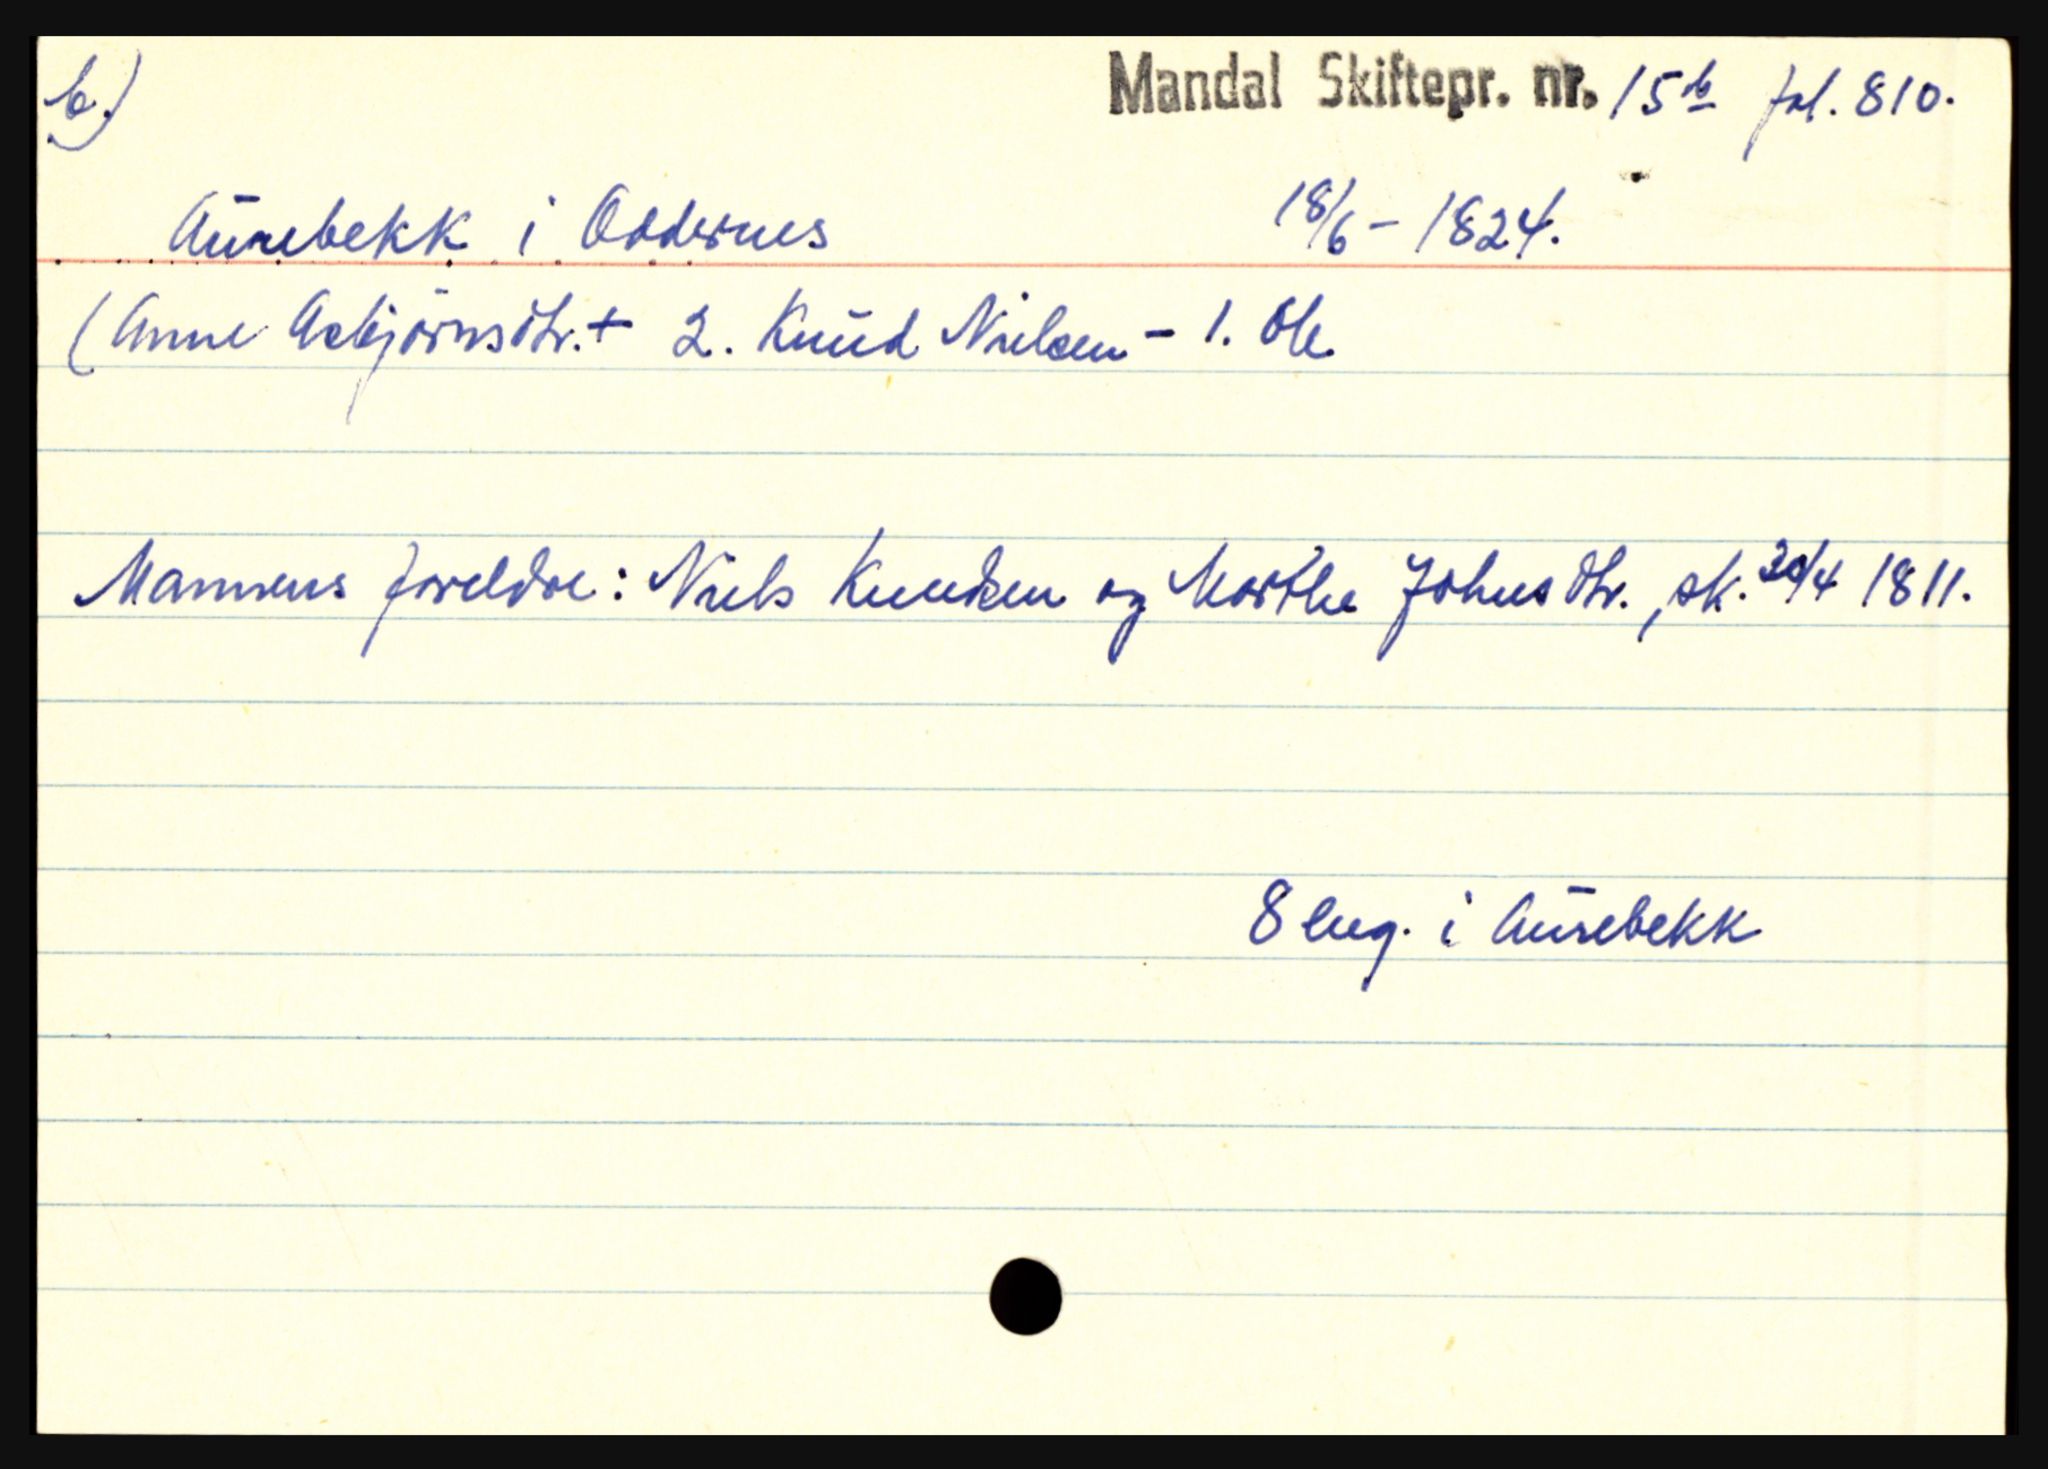 b.) Mandal Skiftepr. nr. 15b fol. 810.
Aurebekk i Oddernes 18/6 - 1824.
(Anne Asbjörnsdtr. + 2. Knud Nielsen - 1. Ole
Mannens foreldre: Niels Knudsen og Marthe Johnsdtr., sk. 30/4 1811.
8 eng. i Aurebekk